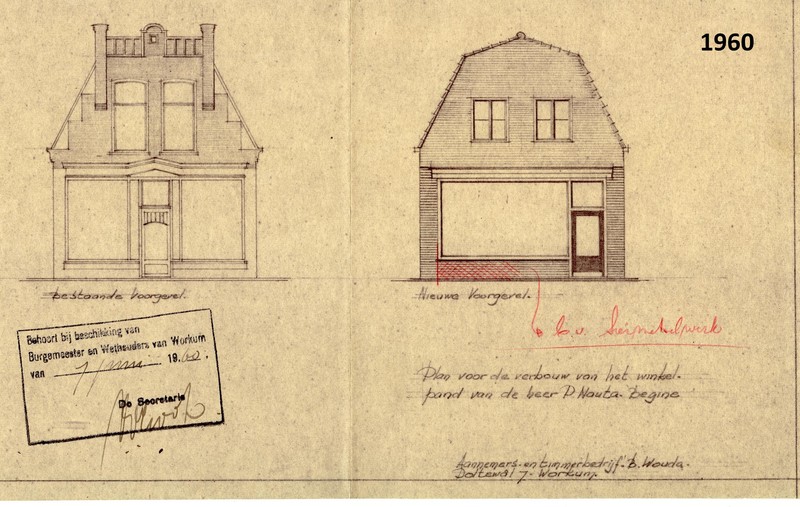 1960
bestaande Voorgevel.
Nieuwe Voorgevel.
Behoort bij beschikking van
Burgemeester en Wethouders van Workum
van 7 juni 1960.
De Secretaris
Plan voor de verbouw van het winkel-
pand van de heer P. Nauta. Begine
Aannemers- en timmerbedrijf. B. Wouda.
Doltewal 7 - Workum.